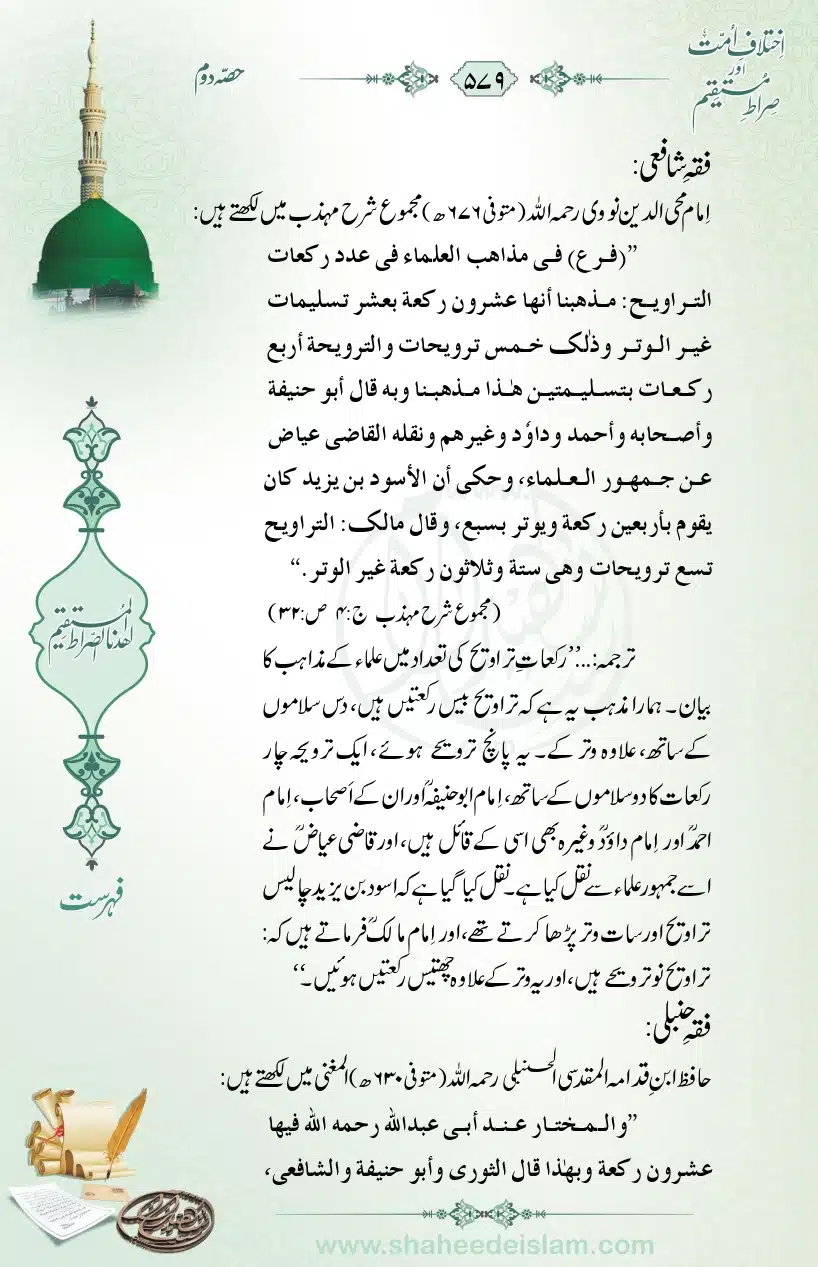 اِختلافِ اُمّت
اور
صراطِ مُستقیم
۵۷۹
حصّہ دوم
فقہِ شافعی:
اِمام محی الدین نووی رحمہ اللہ (متوفی ۶۷۶ھ) مجموع شرح مہذب میں لکھتے ہیں:
”(فرع) فی مذاهب العلماء فی عدد رکعات
التراویح: مذهبنا أنها عشرون رکعة بعشر تسلیمات
غیر الوتر وذٰلک خمس ترویحات والترویحة أربع
رکعات بتسلیمتین هٰذا مذهبنا وبه قال أبو حنیفة
وأصحابه وأحمد وداوٗد وغیرهم ونقله القاضی عیاض
عن جمهور العلماء، وحکی أن الأسود بن یزید کان
یقوم بأربعین رکعة ویوتر بسبع، وقال مالک: التراویح
تسع ترویحات وهی ستة وثلاثون رکعة غیر الوتر.“
(مجموع شرح مہذب ج:۴ ص:۳۲)
ترجمہ:...’’رکعاتِ تراویح کی تعداد میں علماء کے مذاہب کا
بیان۔ ہمارا مذہب یہ ہے کہ تراویح بیس رکعتیں ہیں، دس سلاموں
کے ساتھ، علاوہ وتر کے۔ یہ پانچ ترویحے ہوئے، ایک ترویحہ چار
رکعات کا دو سلاموں کے ساتھ، اِمام ابوحنیفہؒ اور ان کے اَصحاب، اِمام
احمدؒ اور اِمام داؤدؒ وغیرہ بھی اسی کے قائل ہیں، اور قاضی عیاضؒ نے
اسے جمہور علماء سے نقل کیا ہے۔ نقل کیا گیا ہے کہ اسود بن یزید چالیس
تراویح اور سات وتر پڑھا کرتے تھے، اور اِمام مالکؒ فرماتے ہیں کہ:
تراویح نو ترویحے ہیں، اور یہ وتر کے علاوہ چھتیس رکعتیں ہوئیں۔‘‘
فقہِ حنبلی:
حافظ ابنِ قدامہ المقدسی الحنبلی رحمہ اللہ (متوفی ۶۳۰ھ) المغنی میں لکھتے ہیں:
”والمختار عند أبی عبدالله رحمه الله فیها
عشرون رکعة وبهٰذا قال الثوری وأبو حنیفة والشافعی،
اهدنا الصراط المستقیم
فہرست
www.shaheedeislam.com